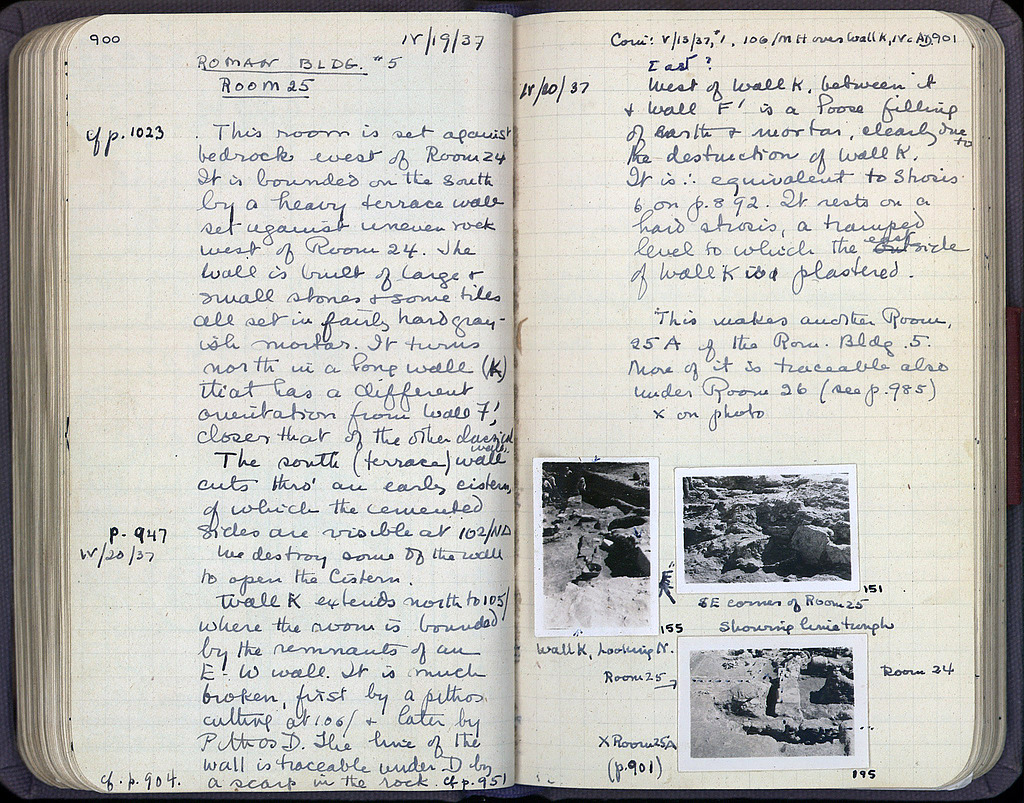 900
IV/19/37
ROMAN BLDG. #5
ROOM 25
cf p. 1023
This room is set against
bedrock west of Room 24
It is bounded on the south
by a heavy terrace wall
set against uneven rock
west of Room 24. The
wall is built of large &
small stones & some tiles
all set in fairly hard gray-
ish mortar. It turns
north in a long wall (K)
that has a different
orientation from wall F',
closer that of the other classical
walls.
The south (terrace) wall
cuts thro' an early cistern,
of which the cemented
sides are visible at 102/ND
p. 947
IV/20/37
We destroy some of the wall
to open the Cistern.
Wall K extends north to 105/
where the room is bounded
by the remnants of an
E-W wall. It is much
broken, first by a pithos
cutting at 106/ & later by
Pithos D. The line of the
wall is traceable under D by
a scarp in the rock. cf p. 951
cf. p. 904.
Coin: V/13/37, #1, 106/MH over Wall K, IV c AD. 901
East?
IV/20/37
West of wall K, between it
& wall F' is a loose filling
of earth & mortar, clearly due
to
the destruction of wall K.
It is ∴ equivalent to Strosis
6 on p. 892. It rests on a
hard strosis, a tramped
level to which the east side
of wall K is plastered.
This makes another Room,
25 A of the Rom. Bldg. 5.
More of it is traceable also
under Room 26 (see p. 985)
X on photo
151
SE corner of Room 25
Showing lime trough
155
Wall K, looking N.
Room 25 →
Room 24
X Room 25A
(p. 901)
195